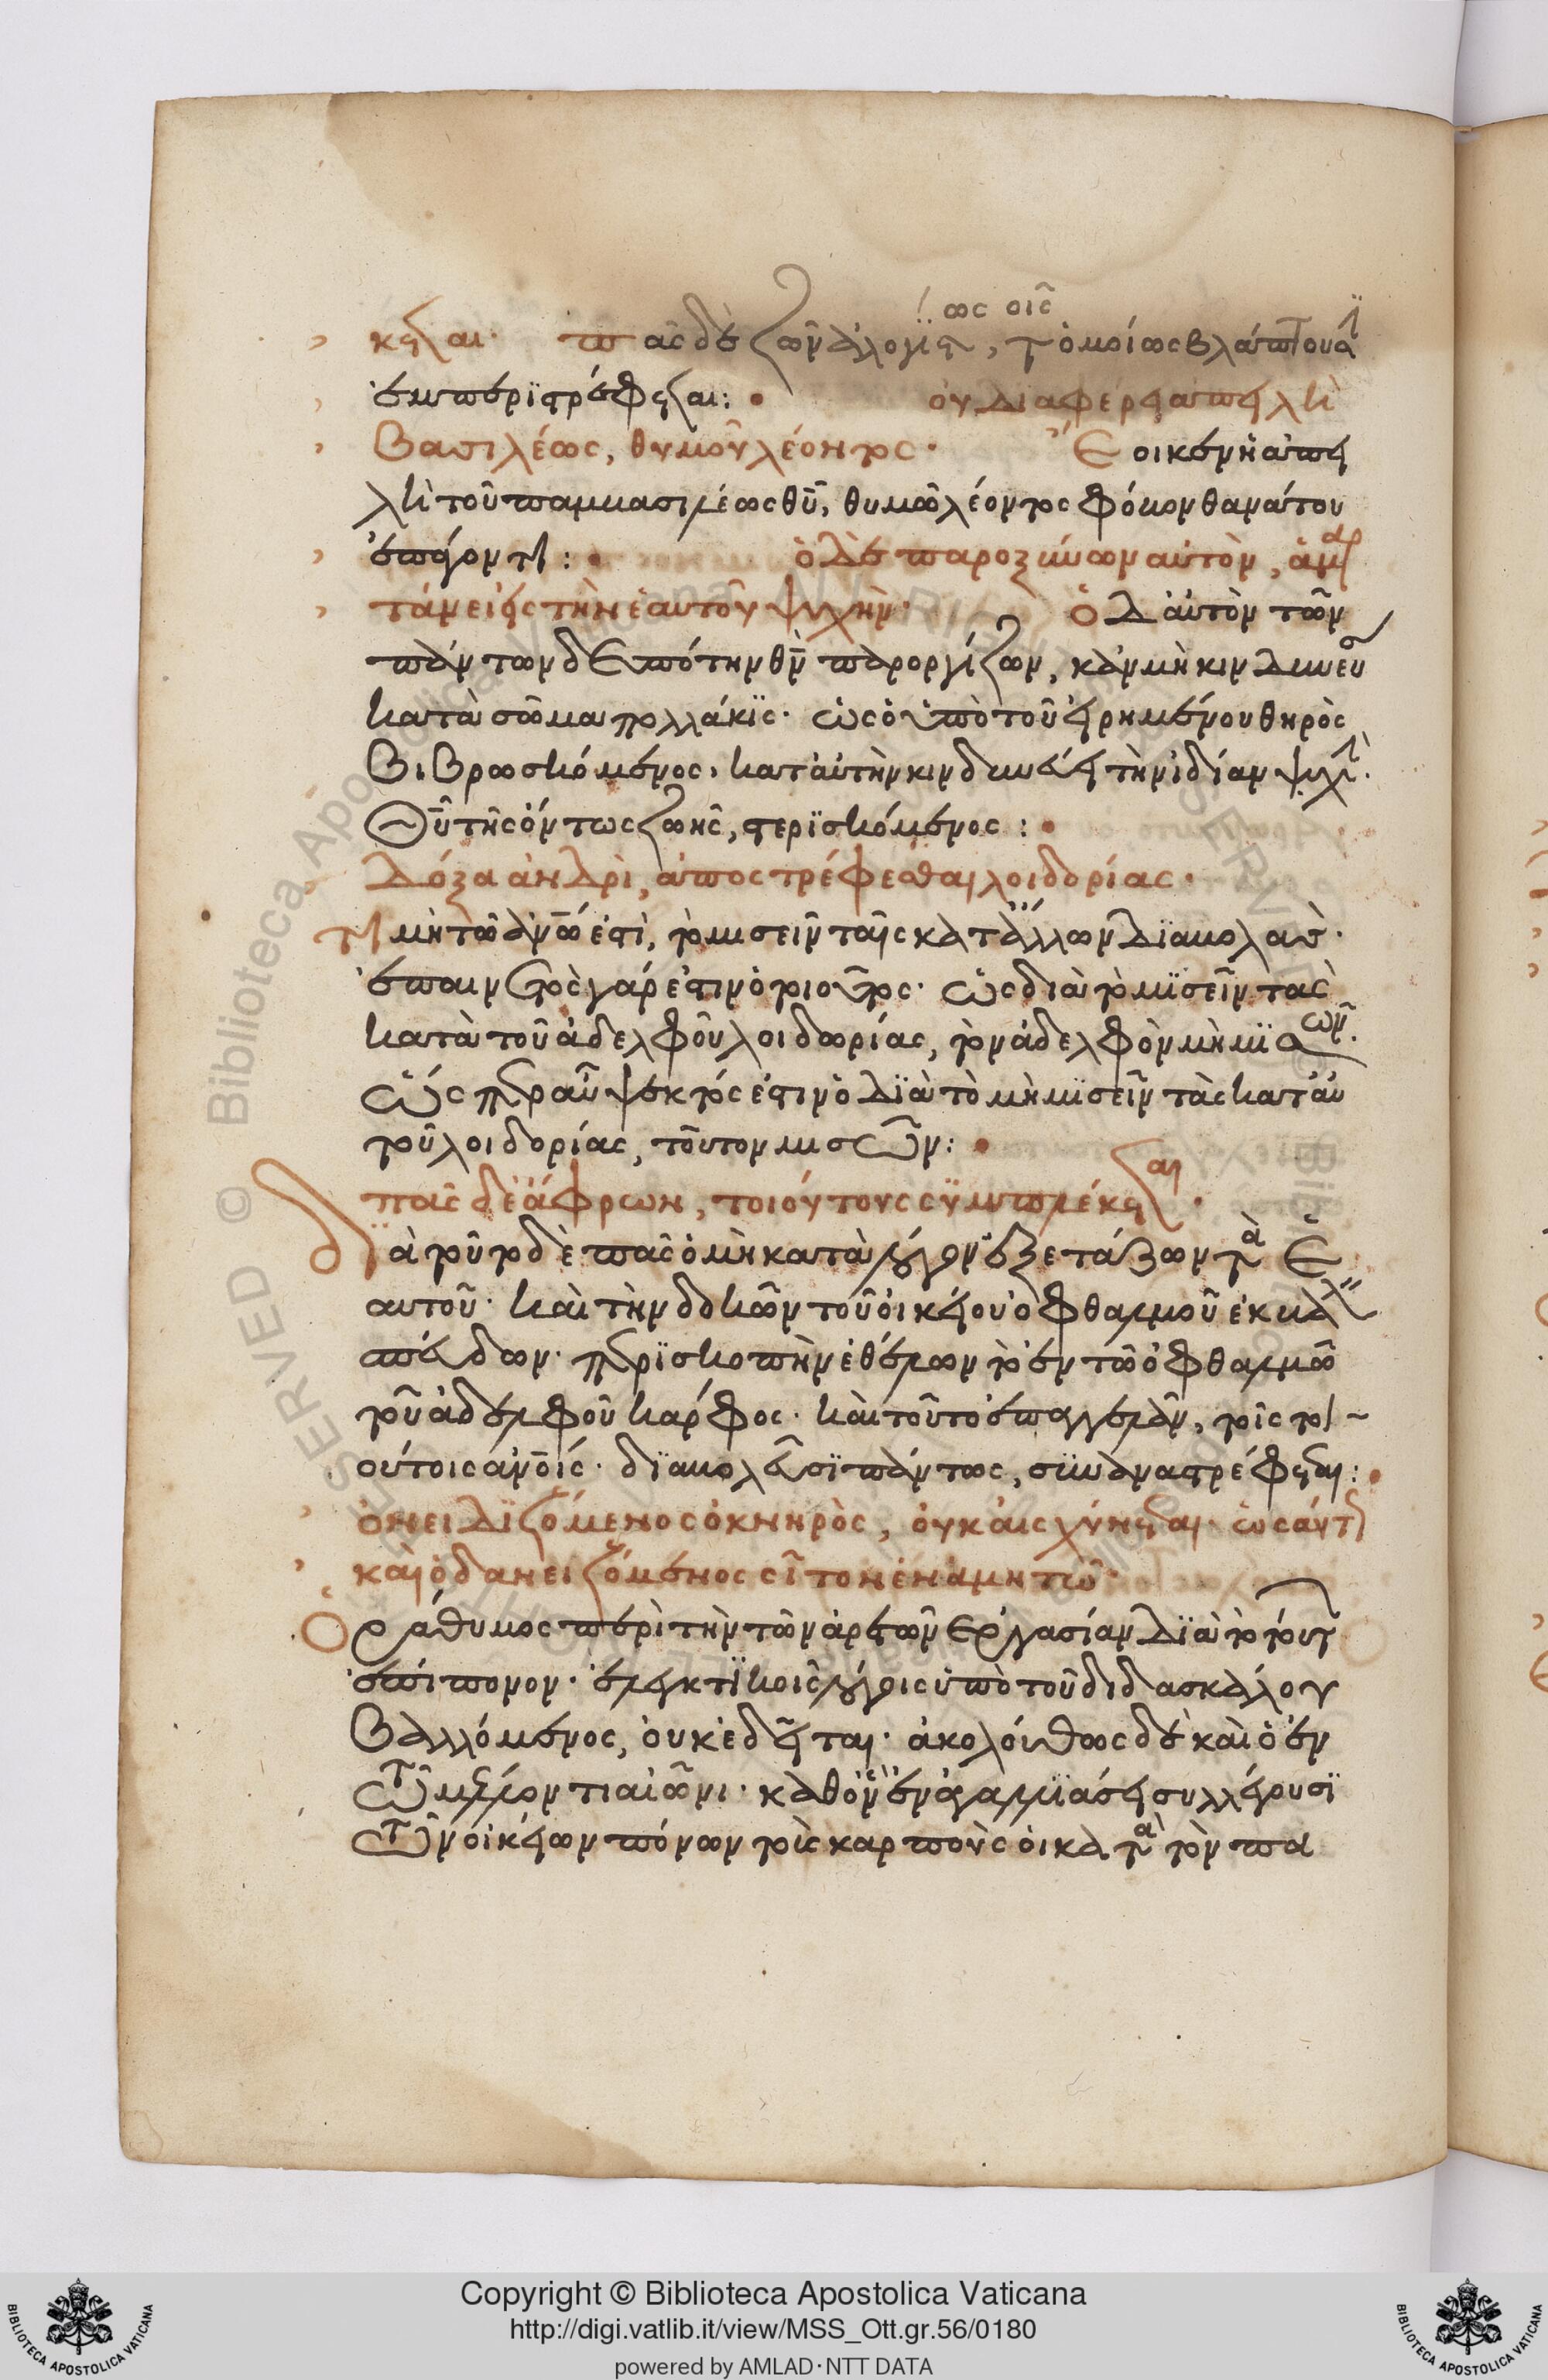 κεται· πᾶς δὲ ζῶν ἀλογίστως, τοῖς ὁμοίως βλάπτουσι
ἐμπεριστρέφεται: οὐ διαφέρει ἀπειλὴ
βασιλέως, θυμοῦ λέοντος· Ἔοικεν ἡ ἀπει
λὴ τοῦ παμβασιλέως θυ, θυμῶ λέοντος φόβον θανάτου
ἐπείοντι: ὁ δὲ παροξύνων αὐτὸν, ἁμαρ
τάνει εἰς τὴν ἑαυτοῦ ψυχήν· Ὁ δ αὐτὸν τῶν
πάντων δεσπότην θν παροργίζων, κἂν μὴ κινδυνεύση
κατὰ σῶμα πολλάκις· ὡς ὁ ὑπὸ τοῦ εἰρημένου θηρὸς
βιβρωσκόμενος, κατ αὐτὴν κινδυνεύει τὴν ἰδίαν ψυχὴν·
Θυ τῆς ὄντως ζωῆς, στερισκόμενος:
Δόξα ἀνδρὶ, ἀποστρέφεσθαι λοιδορίας·
τιμὴ τῶ ἀνῶ ἐστὶ, τὸ μισεῖν ταῖς κατ ἄλλων διαβολαῖς·
ἐπαινετὸς γάρ ἐστιν ὁ τοιοῦτος· ὡς διὰ τὸ μισεῖν τὰς
κατὰ τοῦ ἀδελφοῦ λοιδωρίας, τὸν ἀδελφὸν μὴ μισῶν·
Ὥσπερ αὖ ψεκτός ἐστιν ὁ διὰ τὸ μὴ μισεῖν τὰς κατ αὐ
τοῦ λοιδορίας, τοῦτον μισῶν:
πᾶς δὲ ἄφρων, τοιούτους συμπλέκεται·
διὰ τοῦτο δὲ πᾶς ὁ μὴ κατὰ λόγον ἐξετάζων τὰ ἑ
αυτοῦ· καὶ τὴν δοκῶν τοῦ οἰκείου ὀφθαλμοῦ ἐκβάλλειν
σπεύδων· περισκοπὴν ἐθέλων τὸ ἐν τῶ ὀφθαλμῶ
τοῦ ἀδελφοῦ κάρφος· καὶ τοῦτο ἐπαγγελὰν, τοῖς τοι
ούτοις ἀνοις· διαβολεῦσι πάντως, συναναστρέφεται:
ὀνειδιζόμενος ὀκνηρὸς, οὐκ αἰσχύνεται· ὡσαύτως
καὶ ὁ δανειζόμενος σῖτον ἐν ἀμητῶ·
Ὁ ράθυμος περὶ τὴν τῶν ἀρετῶν ἐργασίαν διὰ τὸ ταύτης
ἐπίπονον· ἐλεγκτικοῖς λόγοις ὑπὸ τοῦ διδασκάλου
βαλλόμενος, οὐκ αἰδεῖται· ἀκολούθως δὲ καὶ ὁ ἐν
τῶ μέλλοντι αἰῶνι· καθ ὃν ἐν ἀγαλλιάσει συλλέγουσι
τῶν οἰκείων πόνων τοὺς καρποὺς οἱ κατὰ τὸν πα
Copyright © Biblioteca Apostolica Vaticana
http://digi.vatlib.it/view/MSS_Ott.gr.56/0180
powered by AMLAD·NTT DATA